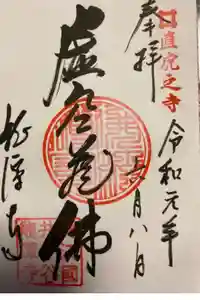 直虎之寺
奉拝
令和元年
六月八日
虚空蔵佛
龍潭寺